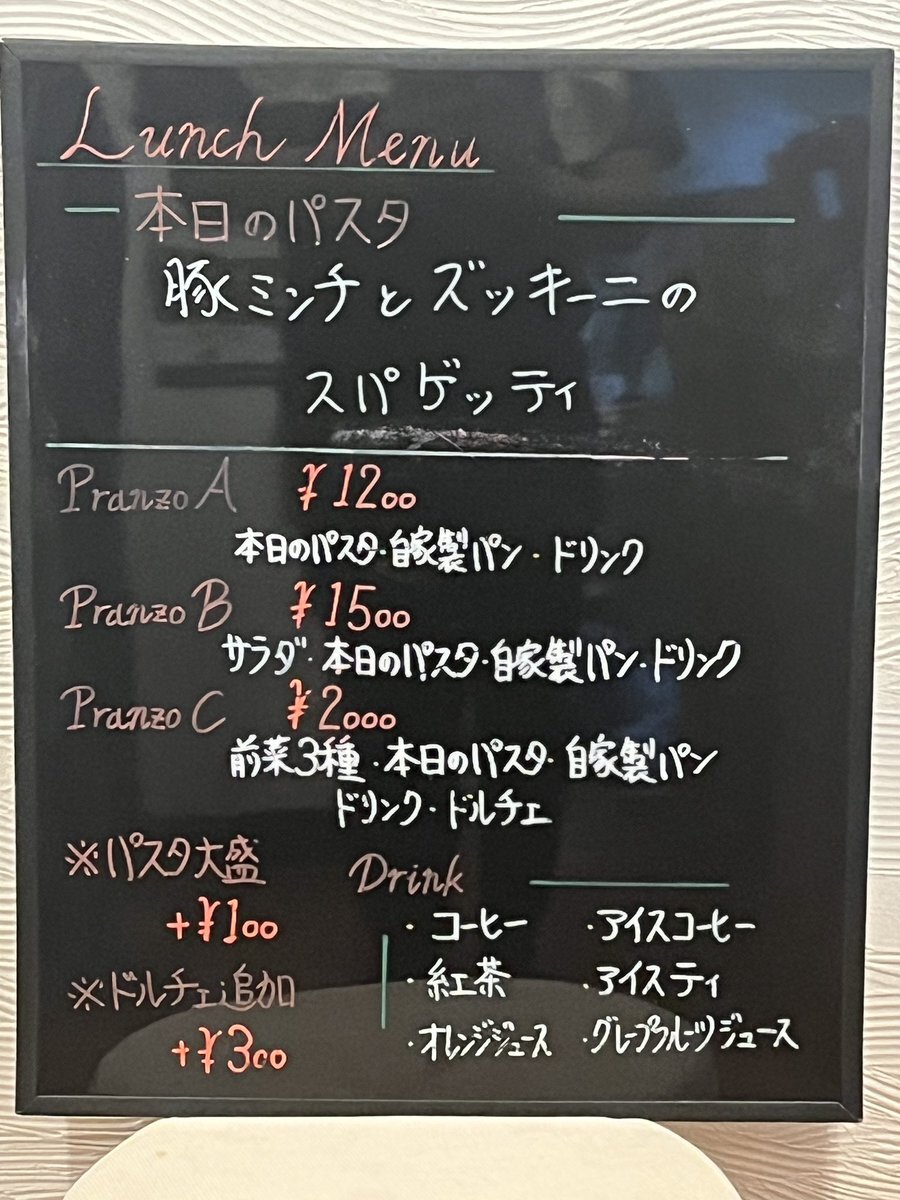 Lunch Menu
本日のパスタ
豚ミンチとズッキーニの
スパゲッティ
Pranzo A ¥1200
本日のパスタ・自家製パン・ドリンク
Pranzo B ¥1500
サラダ・本日のパスタ・自家製パン・ドリンク
Pranzo C ¥2000
前菜3種・本日のパスタ・自家製パン
ドリンク・ドルチェ
※パスタ大盛
+¥100
※ドルチェ追加
+¥300
Drink
・コーヒー ・アイスコーヒー
・紅茶 ・アイスティ
・オレンジジュース ・グレープフルーツジュース